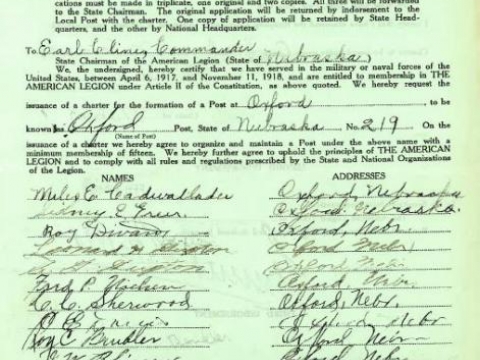 cations must be made in triplicate, one original and two copies. All three will be forwarded
to State Chairman. The original application will be returned by indorsement to the
Local Post with the charter. One copy of application will be retained by State Head-
quarters, and the other by National Headquarters.
To Earl Cline, Commander
State Chairman of the American Legion (State of Nebraska)
We, the undersigned, hereby certify that we served in the military or naval forces of the
United States, between April 6, 1917, and November 11, 1918, and are entitled to membership in THE
AMERICAN LEGION under Article II of the Constitution, as above quoted. We hereby request the
issuance of a charter for the formation of a Post at Oxford to be
known as Oxford Post, State of Nebraska No. 219 On the
(Name of Post)
issuance of the charter we hereby agree to organize and maintain a Post under the above name with a
minimum membership of fifteen. We hereby further agree to uphold the principles of THE AMERICAN
LEGION and to comply with all rules and regulations prescribed by the State and National Organizations
of the Legion.
NAMES ADDRESSES
Miles E. Cadwallader Oxford, Nebraska
Sidney E. Greer Oxford Nebraska.
Roy Divan Oxford, Nebr
Leonard H. Oxford Nebr
Oxford Nebr
Ford P. Oxford, Nebr
C. C. Sherwood Oxford, Nebr.
Oxford Nebr
Roy C. Oxford Nebra
Oxford